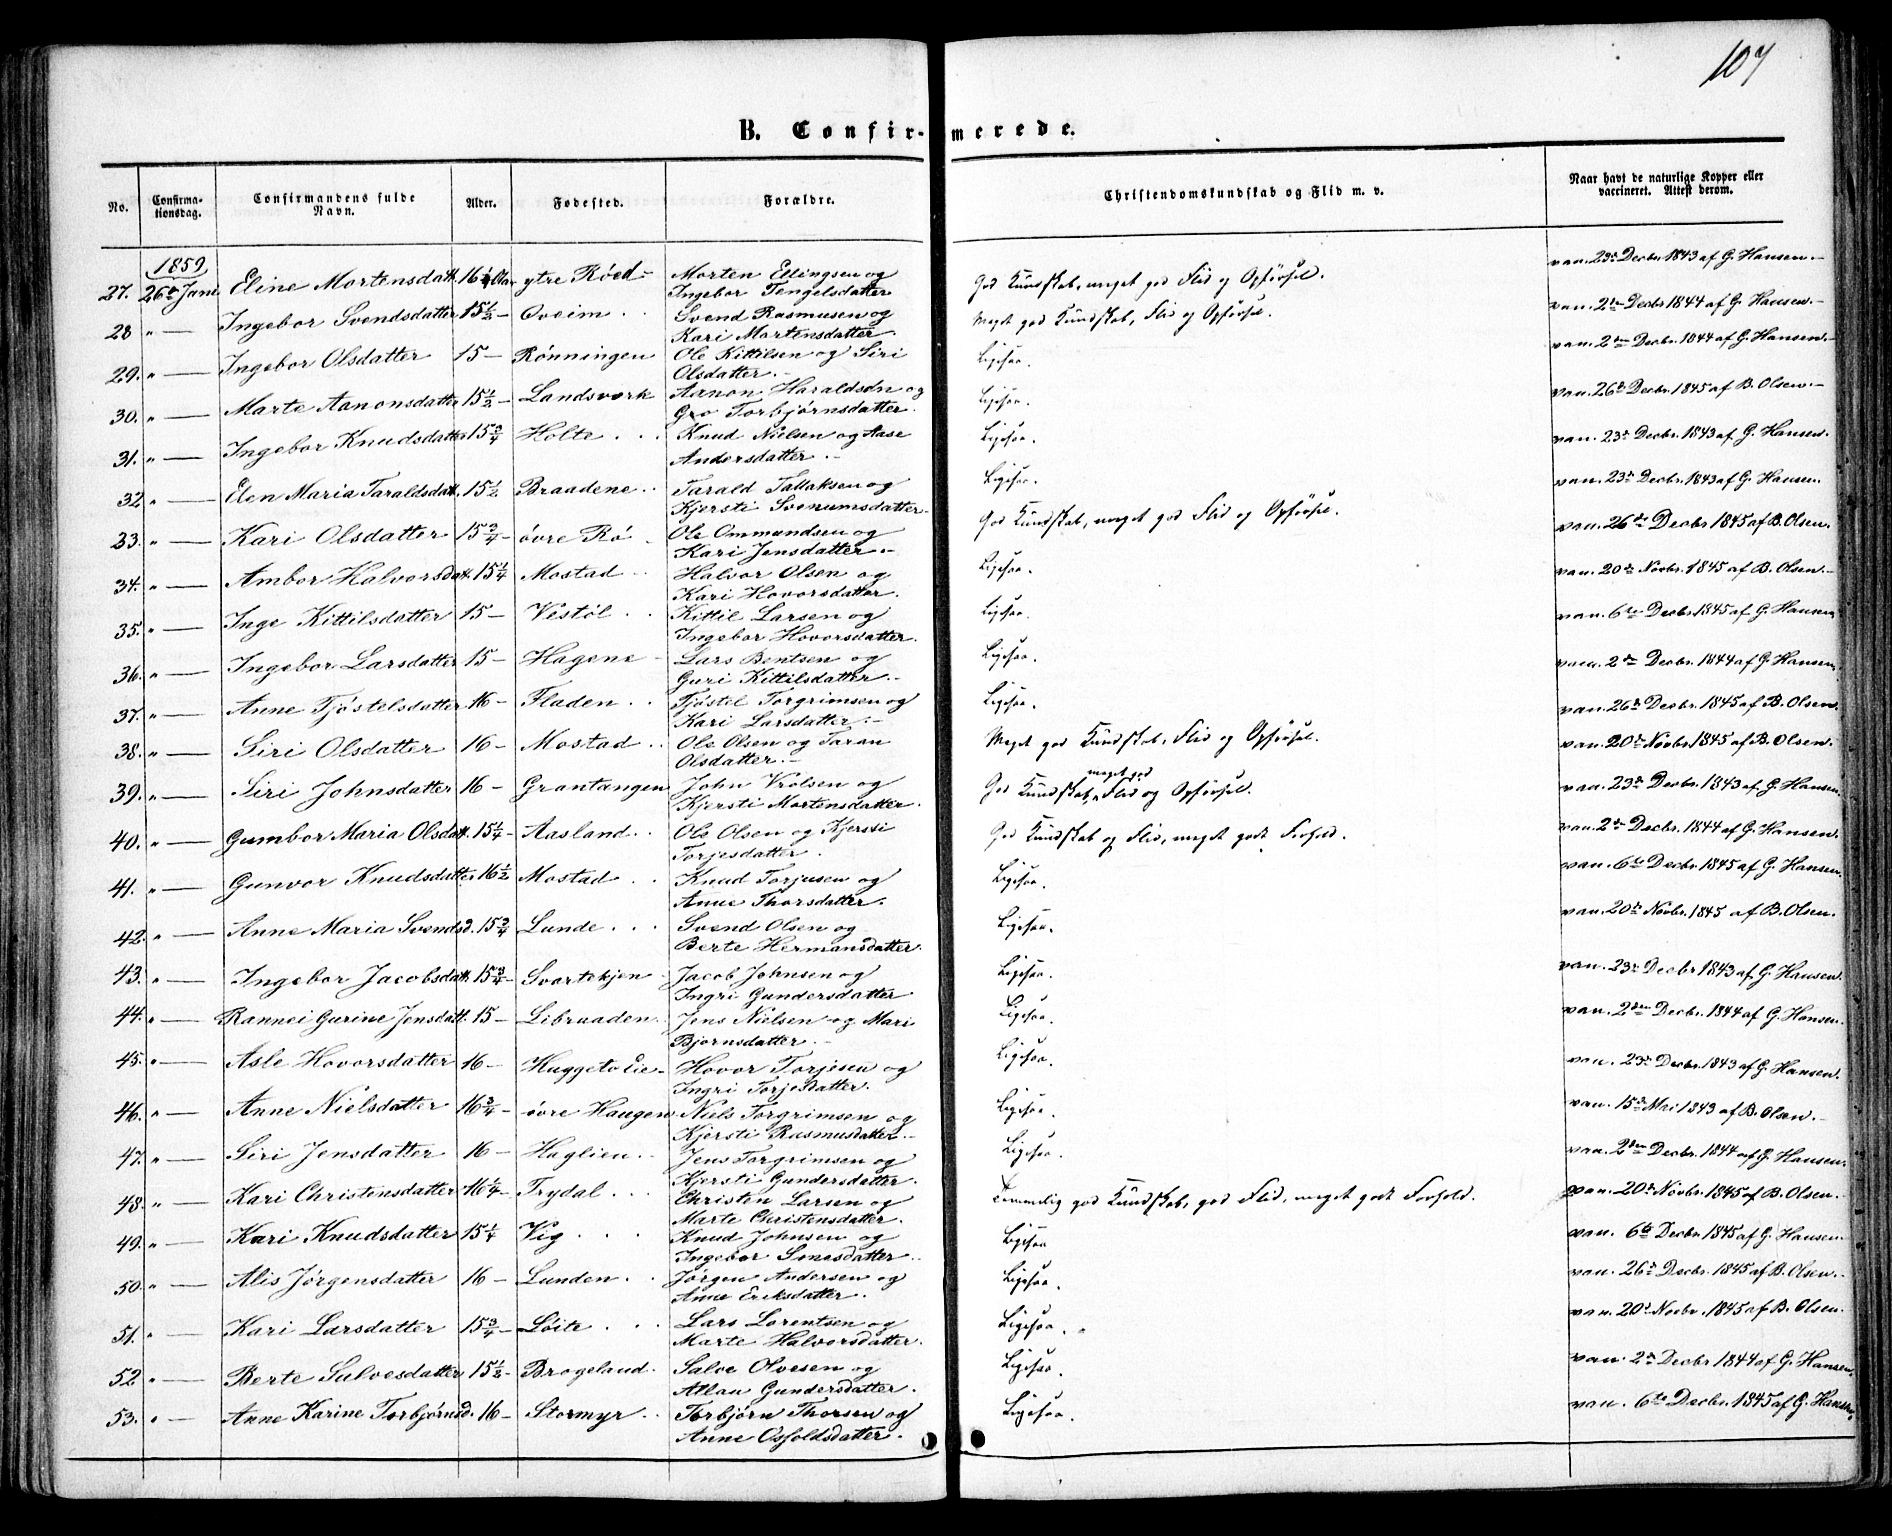 107
B. Confirmerede.
No. Confirmationsdag. Confirmandens fulde Navn. Alder. Fødested. Forældre. Christendomskundskab og Flid m. v. Naar havt de naturlige Kopper eller vaccineret. Attest derom.
1859
27. 26de Juni Eline Mortensdatt. 16 ytre Röed Morten Ellingsen og Ingebor Tengelsdatter God Kundskab, meget god Flid og Opførsel. van. 23de Decbr. 1843 af G. Hansen.
28 " — Ingebor Svendsdatter 15½ Oveim Svend Rasmusen og Kari Martensdatter. Meget god Kundskab, Flid og Opførsel. van. 2den Decbr 1844 af G. Hansen.
29. " — Ingebor Olsdatter 15 — Rønningen Ole Kittilsen og Siri Olsdatter. Ligesaa. van. 2den Decbr. 1844 af G. Hansen.
30. " — Marte Aanonsdatter 15½ — Landsverk Aanon Haraldsen og Gro Torbjørnsdatter. Ligesaa. van. 26de Decbr. 1845 af B. Olsen.
31. " — Ingebor Knudsdatter 15¾ Holte Knud Nielsen og Aase Andersdatter. Ligesaa. van. 23de Decbr. 1843 af G. Hansen.
32 " — Elen Maria Taraldsdatt. 15½ Braadene Tarald Tallaksen og Kjersti Svenumsdatter. Ligesaa. van. 23de Decbr. 1843 af G. Hansen.
33. " — Kari Olsdatter 15¾ — övre Rö Ole Ommundsen og Kari Jensdatter. God Kundskab, meget god Flid og Opførsel. van. 26de Decbr. 1845 af B. Olsen.
34. " — Ambor Halvorsdatt. 15¼ Mostad Halvor Olsen og Kari Hovorsdatter. Ligesaa. van. 20de Novbr. 1845 af B. Olsen.
35. " — Inge Kittilsdatter 15 — Vestöl Kittil Larsen og Ingebor Hovorsdatter. Ligesaa. van. 6te Decbr. 1845 af G. Hansen
36. " — Ingebor Larsdatter 15 — Hagene Lars Bentsen og Guri Kittilsdatter. Ligesaa. van. 2den Decbr. 1844 af G. Hansen
37. " — Anne Tjöstelsdatter 16 — Fladen Tjöstel Torgrimsen og Kari Larsdatter. Ligesaa. van. 26de Decbr. 1845 af B. Olsen.
38. " — Siri Olsdatter 16 — Mostad Ole Olsen og Taran Olsdatter. Meget god Kundskab, Flid og Opførsel. van. 20de Novbr. 1845 af B. Olsen.
39. " — Siri Johnsdatter 16 — Grantangen John Vrolsen og Kjersti Mortensdatter. God Kundskab, meget god Flid og Opførsel. van. 23de Decbr. 1843 af G. Hansen.
40. " — Gumbor Maria Olsdatt. 15¼ Aasland Ole Olsen og Kjersti Torjesdatter. God Kundskab og Flid, meget godt Forhold. van. 2den Decbr. 1844 af G. Hansen.
41. " — Gunvor Knudsdatter 16½ Mostad Knud Torjusen og Anne Thorsdatter. Ligesaa. van. 6te Decbr. 1845 af G. Hansen.
42. " — Anne Maria Svendsd. 15¾ Lunde Svend Olsen og Berte Hermansdatter. Ligesaa. van. 20de Novbr. 1845 af B. Olsen.
43. " — Ingebor Jacobsdatt. 15¾ — Svartekjen Jacob Johnsen og Ingri Gundersdatter Ligesaa. van. 23de Decbr 1843 af G. Hansen.
44. " — Rannei Gurine Jensdatt. 15 — Libraaden Jens Nielsen og Mari Bjornsdatter. Ligesaa. van. 2den Decbr. 1844 af G. Hansen.
45. " — Asle Hovorsdatter 16 — Huggeto Eie Hovor Torjesen og Ingri Torjesdatter. Ligesaa. van. 23de Decbr. 1843 af G. Hansen.
46. " — Anne Nielsdatter 16¾ — övre Haugen Niels Torgrimsen og Kjersti Rasmusdatter. Ligesaa. van. 15de Mai 1843 af B. Olsen.
47. " — Siri Jensdatter 16 — Haglien Jens Torgrimsen og Kjersti Gundersdatter. Ligesaa. van. 2den Decbr. 1844 af G. Hansen.
48. " — Kari Christensdatter 16¼ Trydal Christen Larsen og Marte Christensdatter. Temmelig god Kundskab, god Flid, meget godt Forhold. van. 20de Novbr. 1845 af B. Olsen.
49. " — Kari Knudsdatter 15¼ Vig Knud Johnsen og Ingebor Simesdatter Ligesaa van. 6te Decbr 1845 af G. Hansen
50. " — Alis Jörgensdatter 16 — Lunden Jörgen Andersen og Anne Eriksdatter. Ligesaa. van. 26de Decbr. 1845 af B. Olsen.
51. " — Kari Larsdatter 15¾ — Löite Lars Lorentsen og Marte Halvorsdatter. Ligesaa. van. 20de Novbr. 1845 af B. Olsen.
52 " — Berte Salvesdatter 15½ — Brogeland Salve Olvesen og Atlau Gundersdatter. Ligesaa. van. 2den Decbr 1844 af G. Hansen.
53. " — Anne Karine Torbjörnsd. 16 — Stormyr Torbjörn Thorsen og Anne Osfoldsdatter. Ligesaa. van. 6te Decbr. 1845 af G. Hansen